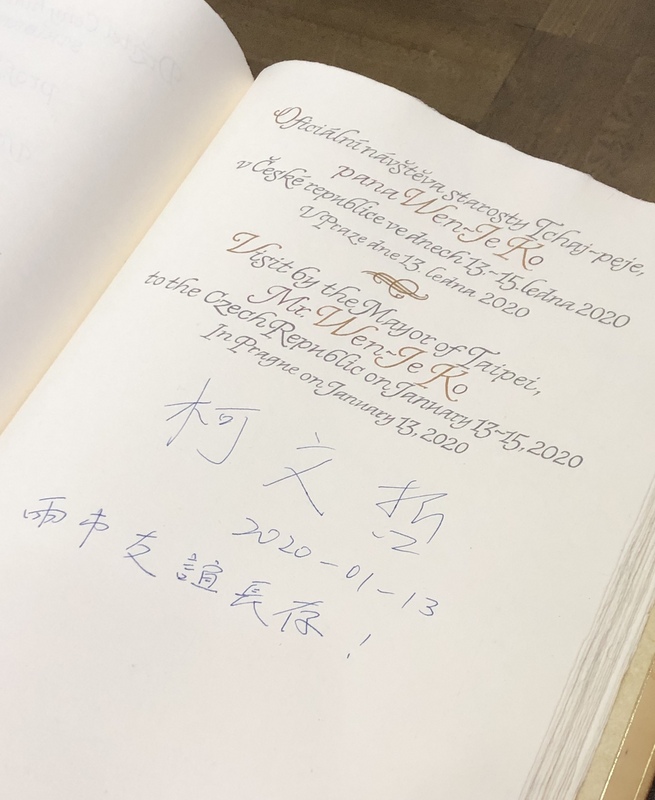 Oficiální návštěva starosty Tchaj-peje,
pana Wen-Je Ko
v České republice ve dnech 13-15. ledna 2020
V Praze dne 13. ledna 2020
Visit by the Mayor of Taipei,
Mr. Wen-Je Ko
to the Czech Republic on January 13-15, 2020
In Prague on January 13, 2020
柯文哲
2020-01-13
兩市友誼長存!